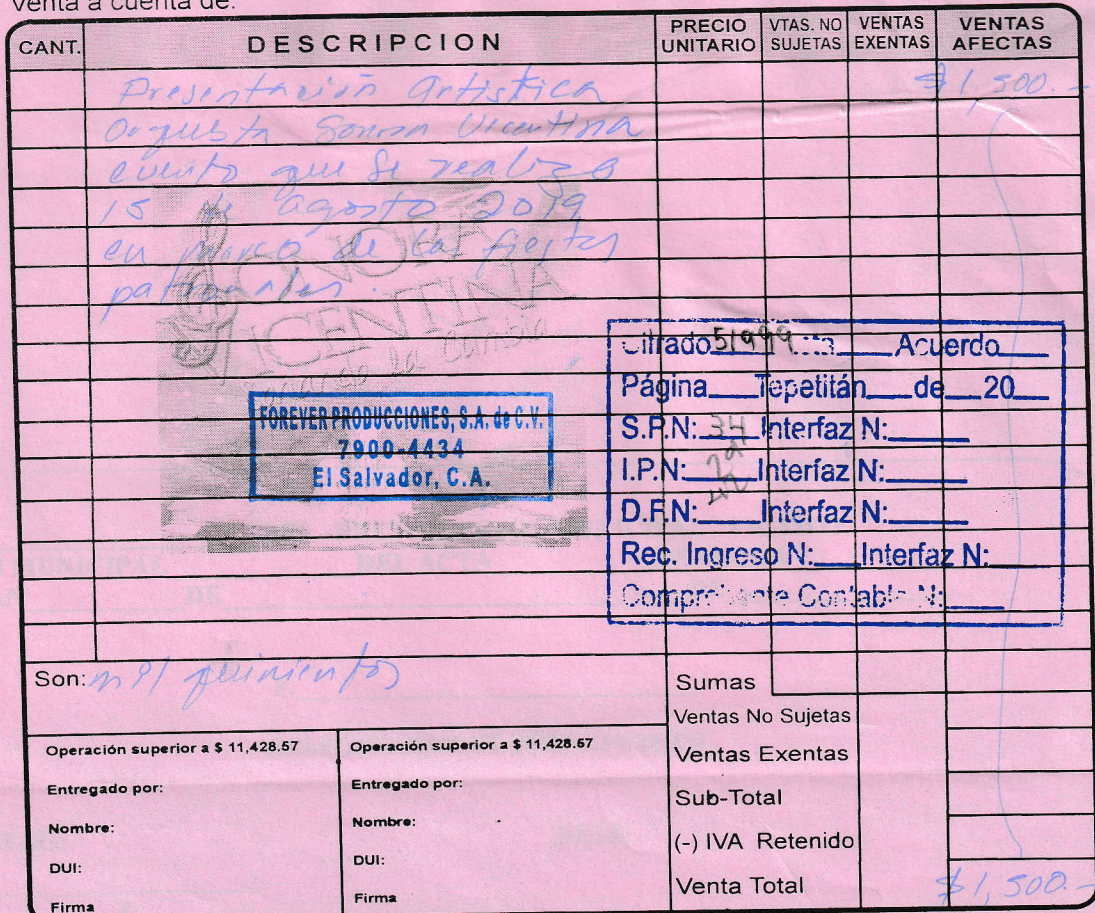 Venta a cuenta de:
CANT. DESCRIPCION PRECIO UNITARIO VTAS. NO SUJETAS VENTAS EXENTAS VENTAS AFECTAS
Presentación Artistica $1,500.-
Orquesta Sonora Vicentina
evento que se realizo
15 de agosto 2019
en marco de las fiestas
patronales.
SONORA
VICENTINA
la Cumbia
FOREVER PRODUCCIONES, S.A. de C.V.
7900-4434
El Salvador, C.A.
Cifrado 51999 Acuerdo
Página Tepetitán de 20
S.P.N: 34 Interfaz N:
I.P.N: Interfaz N:
D.F.N: Interfaz N:
Rec. Ingreso N: Interfaz N:
Comprobante Contable N:
MUNICIPAL DEL ACTA
DE
Son: mil quinientos
Sumas
Ventas No Sujetas
Ventas Exentas
Sub-Total
(-) IVA Retenido
Venta Total $1,500.-
Operación superior a $ 11,428.57
Entregado por:
Nombre:
DUI:
Firma
Operación superior a $ 11,428.57
Entregado por:
Nombre:
DUI:
Firma